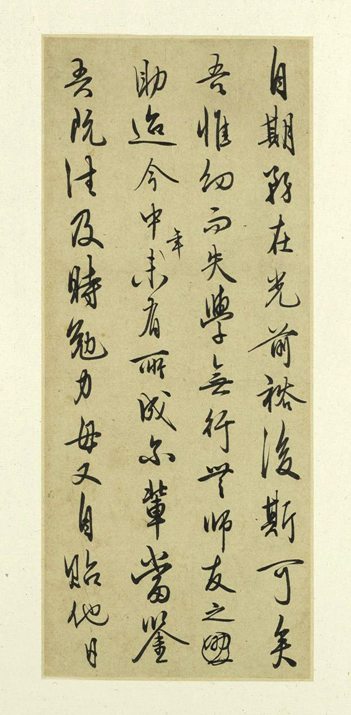 自期務在光前裕後斯可矣
吾惟幼而失學無行無師友之
助迨今中年未有所成尔輩當鑒
吾既往及時勉力毋又自貽他日